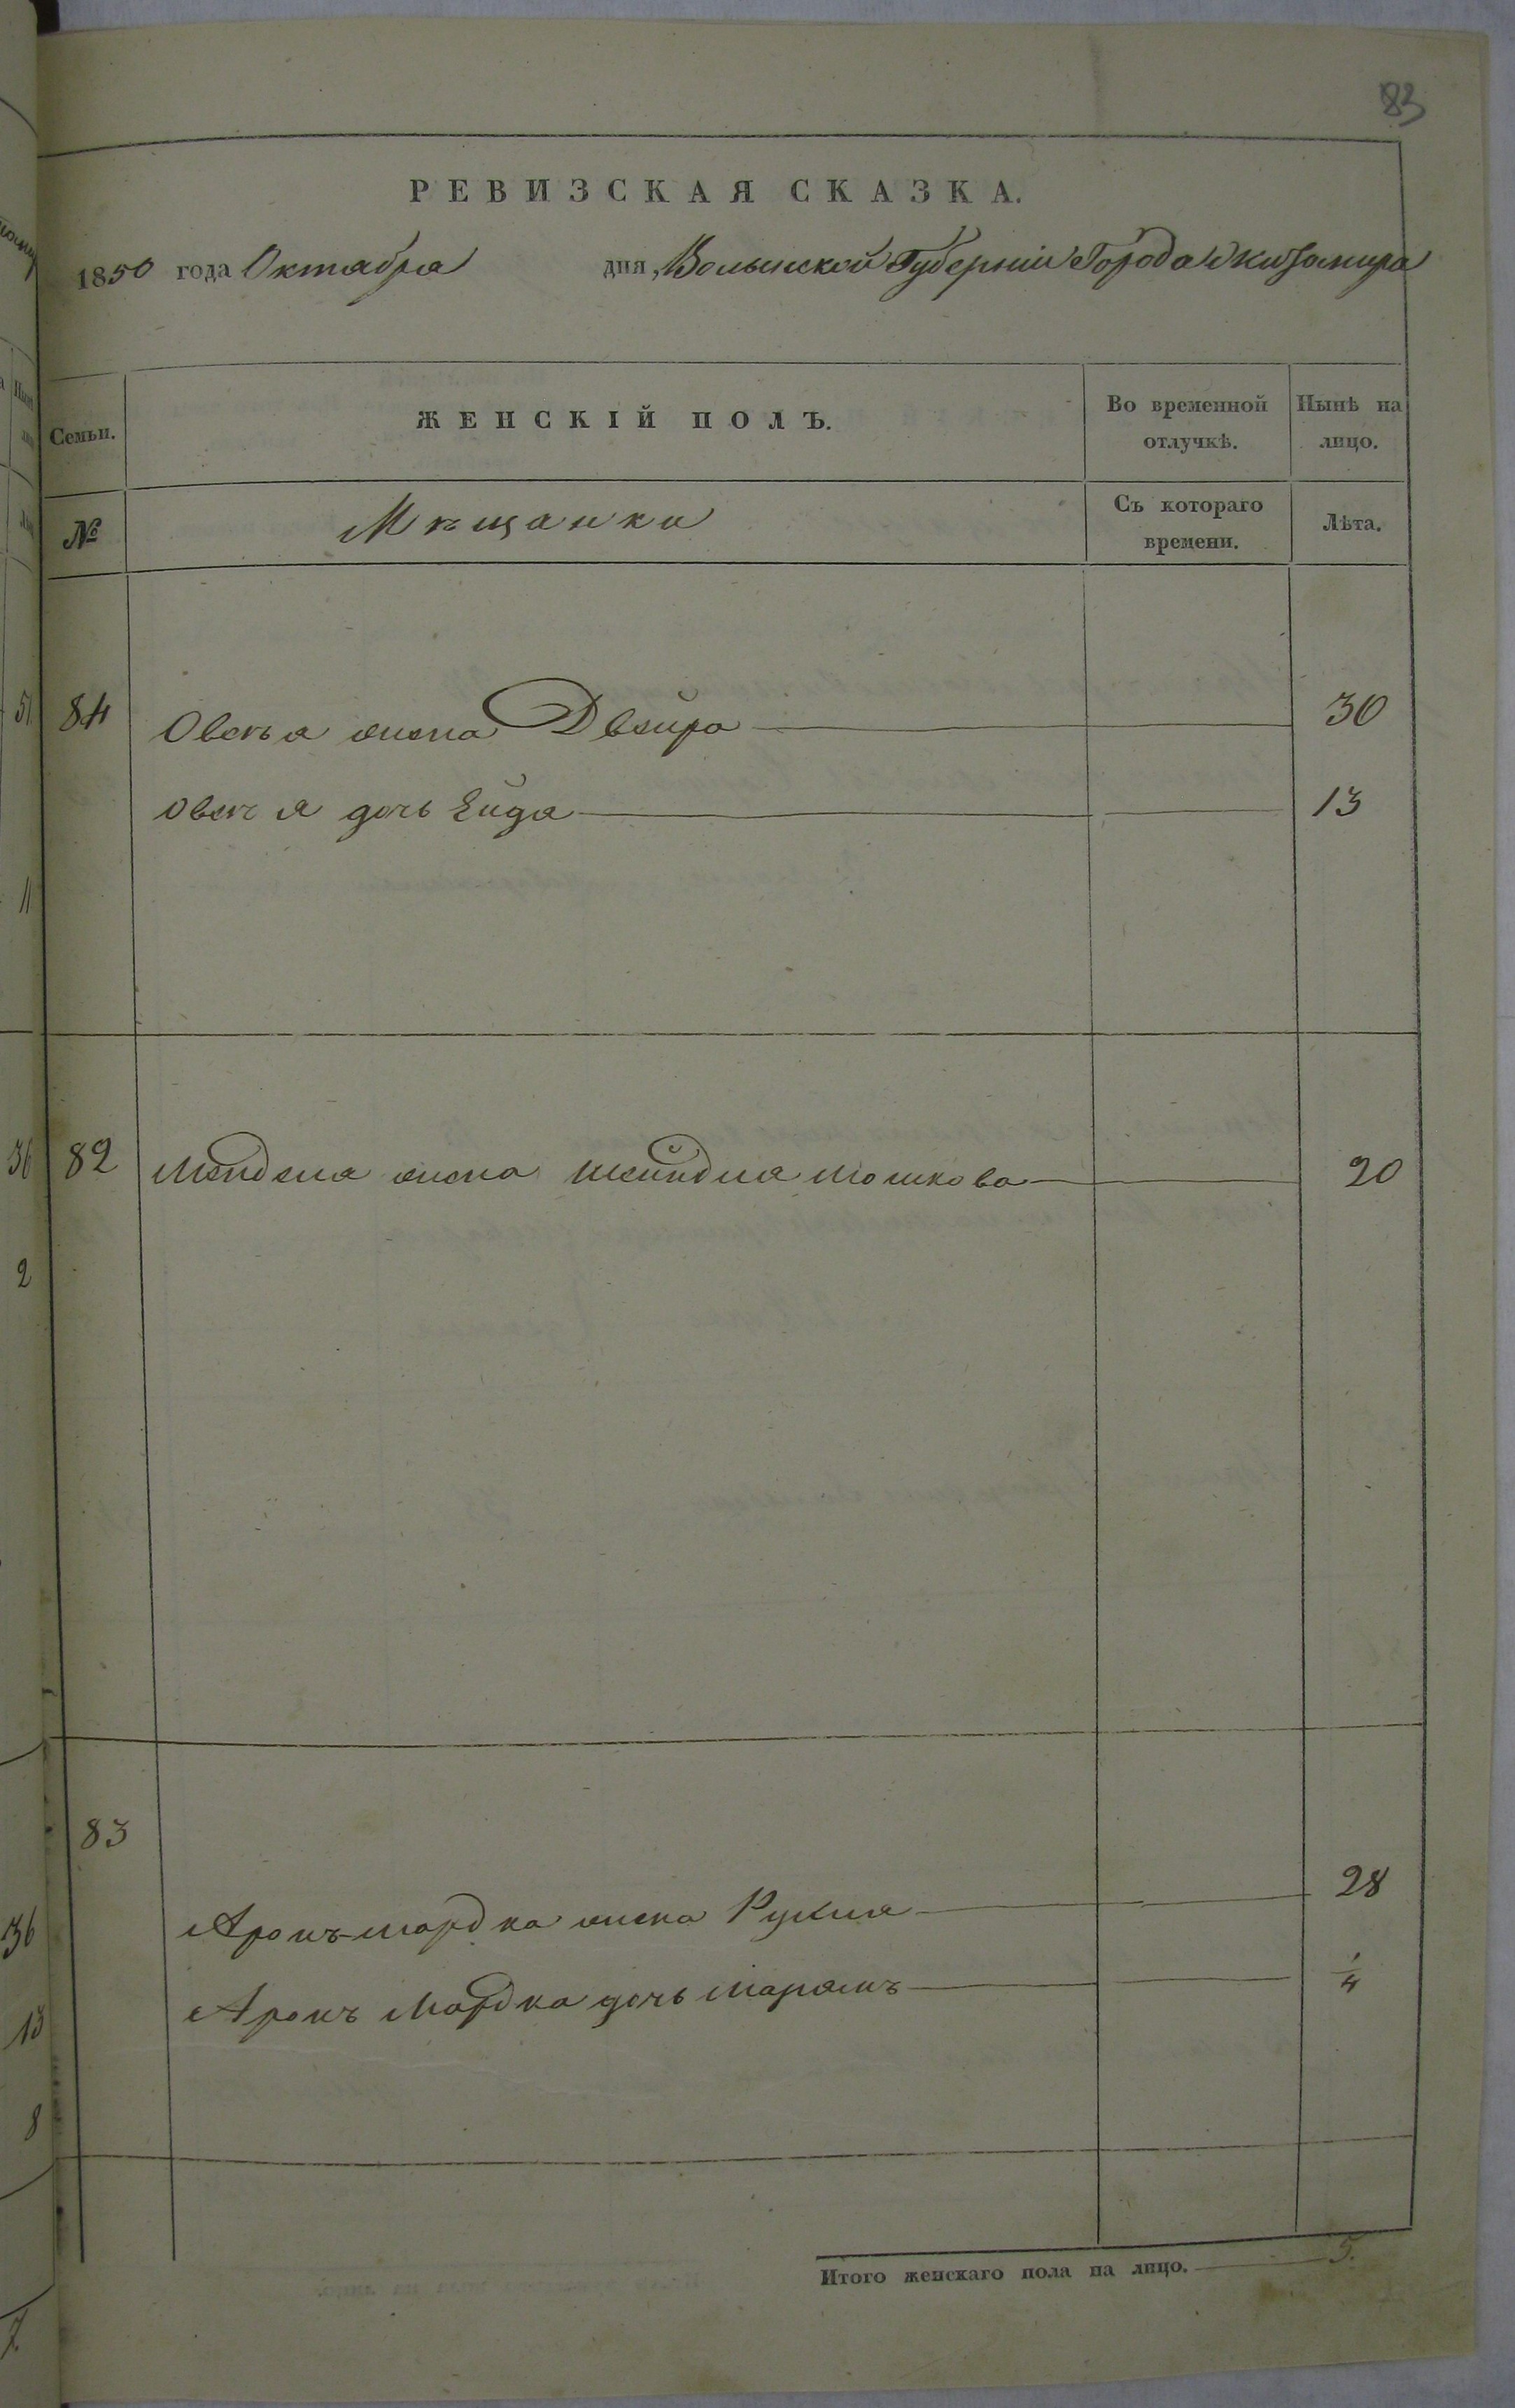 83
РЕВИЗСКАЯ СКАЗКА.
1850 года Октабра дня Волынской Губерніи Города Житомира
Семьи. ЖЕНСКІЙ ПОЛЪ. Во временной отлучкѣ. Нынѣ на лицо.
№ Мѣщанки Съ котораго времени. Лѣта.
51 84 Овсѣя жена Двейра 30
Овсѣя дочь Ейдя 13
11
36 82 Мендела жена Шейндля Мошкова 20
2
83
36 Аронъ-Мордка жена Рухля 28
Аронъ Мордка дочь Марямъ 1/4
13
8
Итого женскаго пола на лицо. 5.